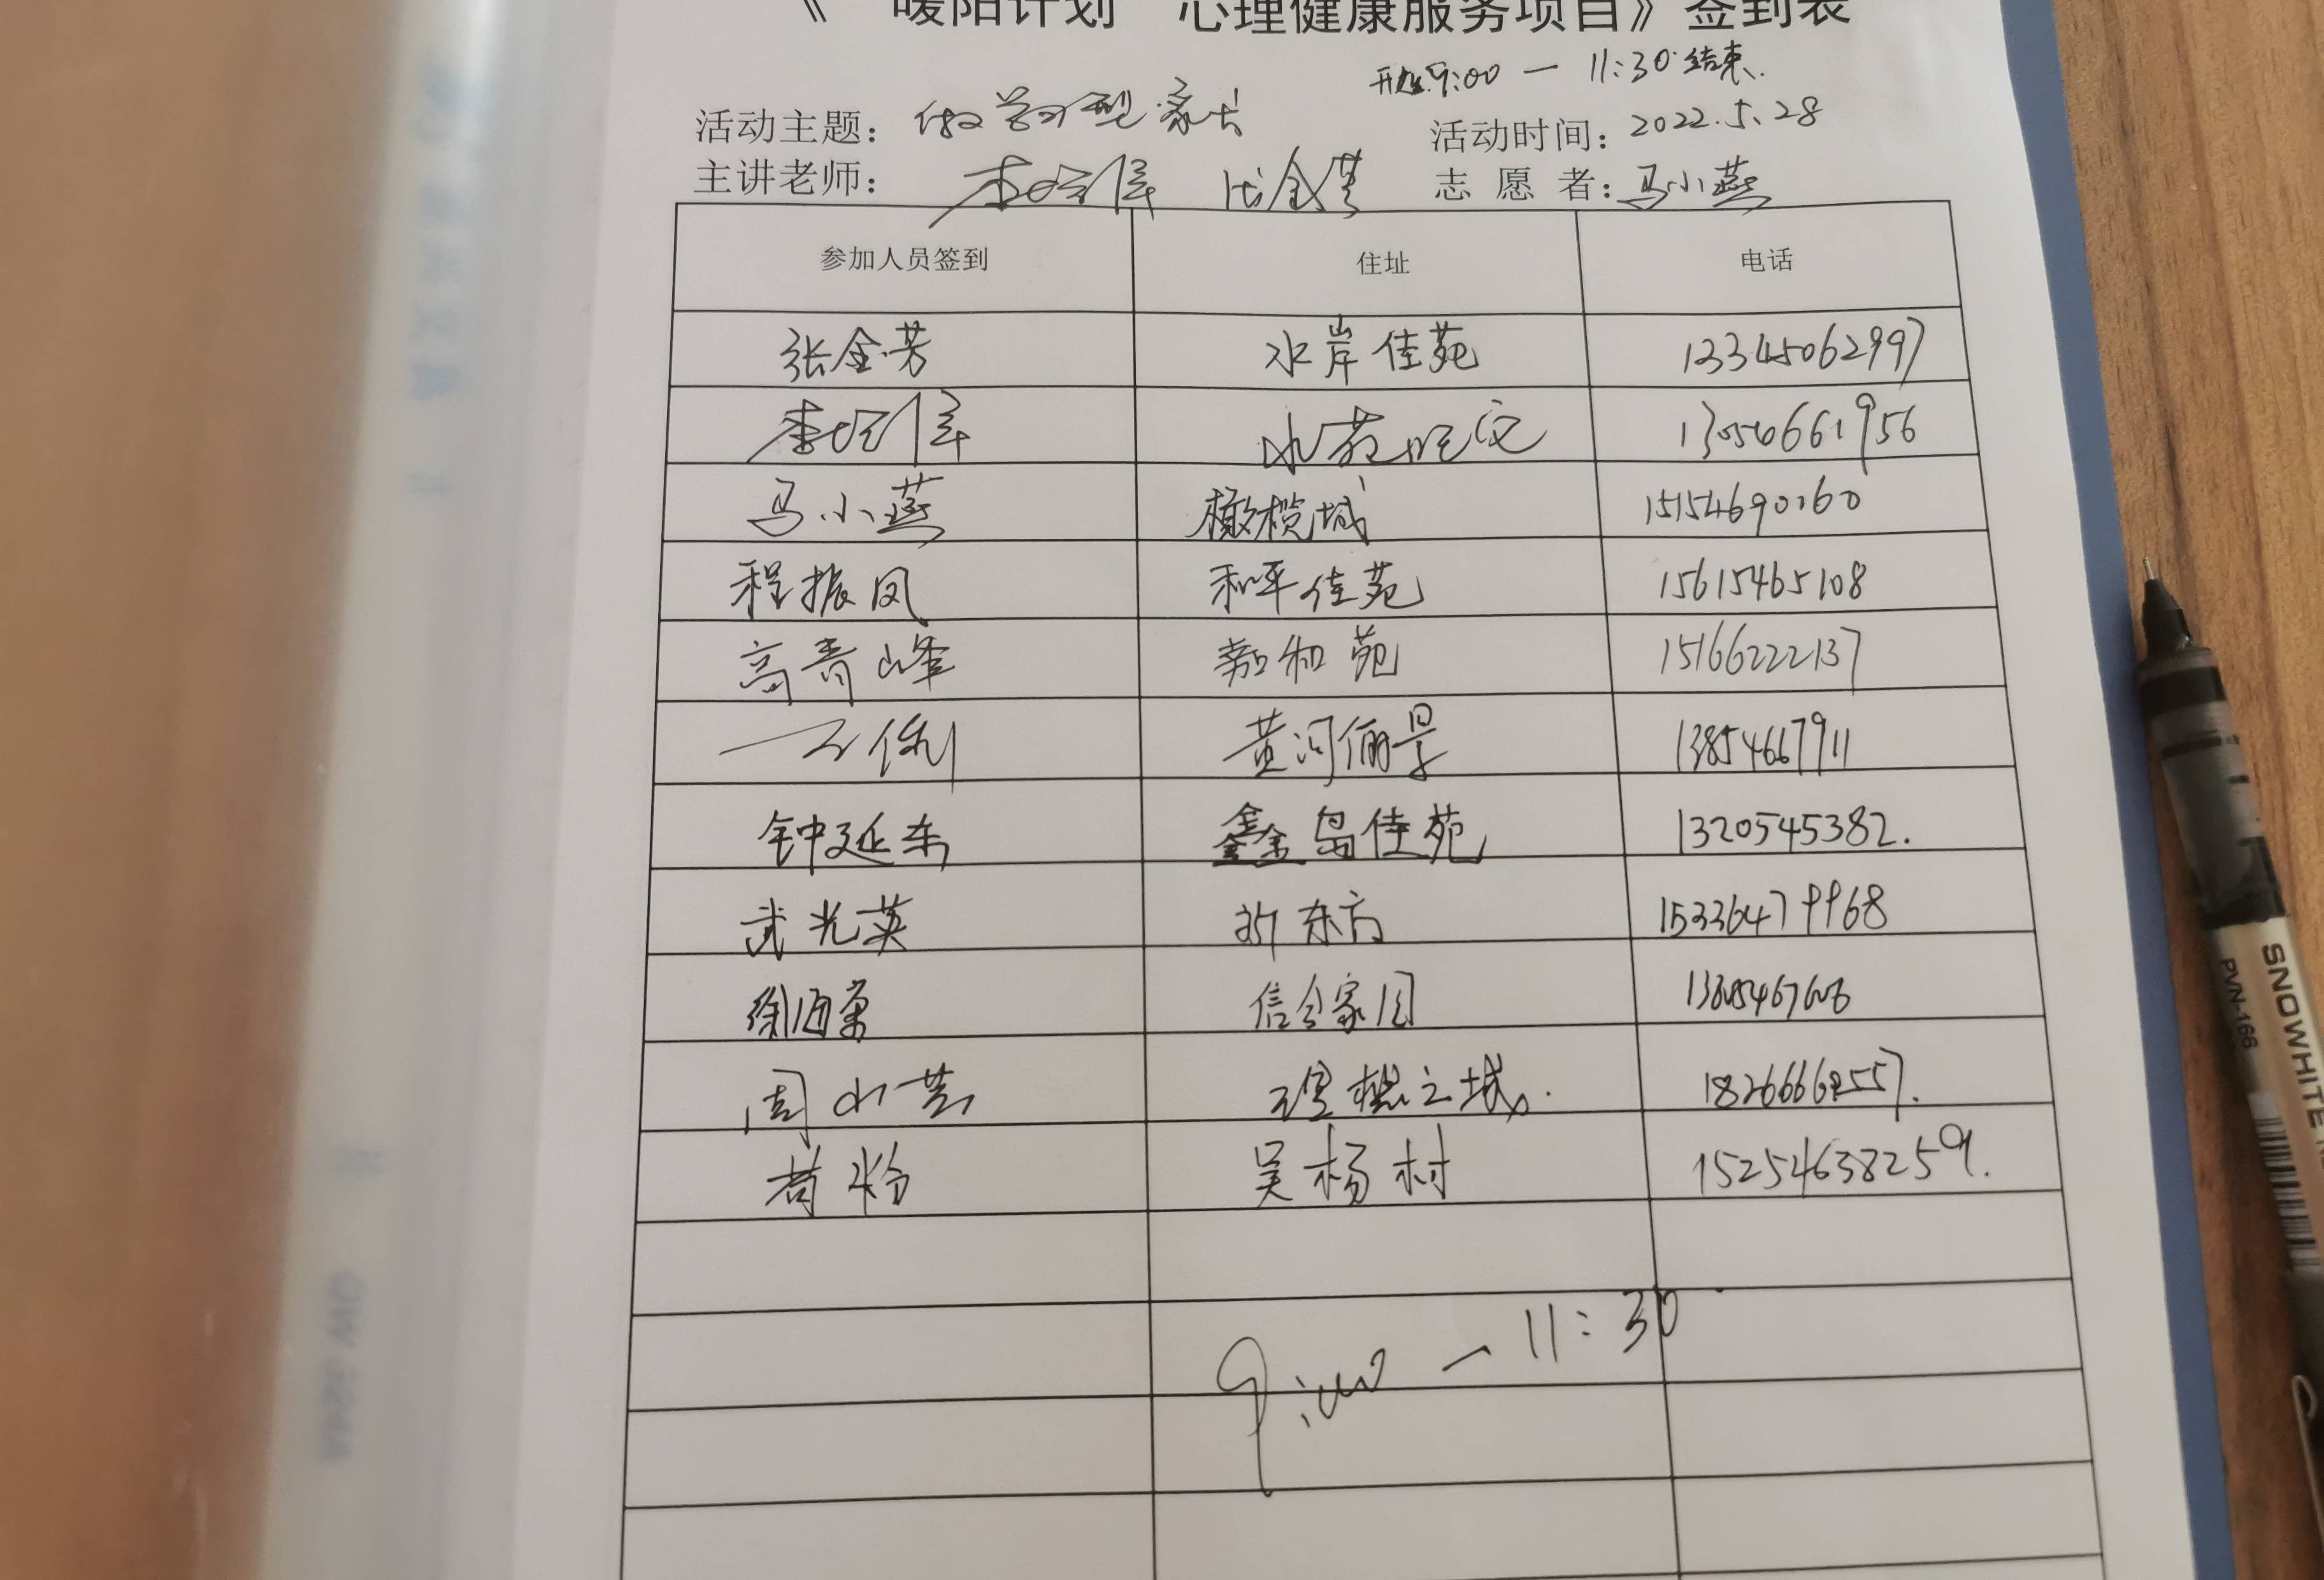 《 暖阳计划 心理健康服务项目》签到表
开始9:00 — 11:30结束.
活动主题： 做学习型家长 活动时间：2022.5.28
主讲老师： 志 愿 者：马小燕
参加人员签到 住址 电话
张金芳 水岸佳苑 13345062997
13054661956
马小燕 橄榄城 15154690160
程振凤 和平佳苑 15615465108
高青峰 嘉和苑 15166222137
黄河俪景 13854667911
钟延东 鑫岛佳苑 1320545382.
武光英 新东方 15336479968
徐海富 信合家园
周小芸 理想之城.
苟粉 吴杨村 15254638259.
9:00 — 11:30
SNOWHITE
PVN-166